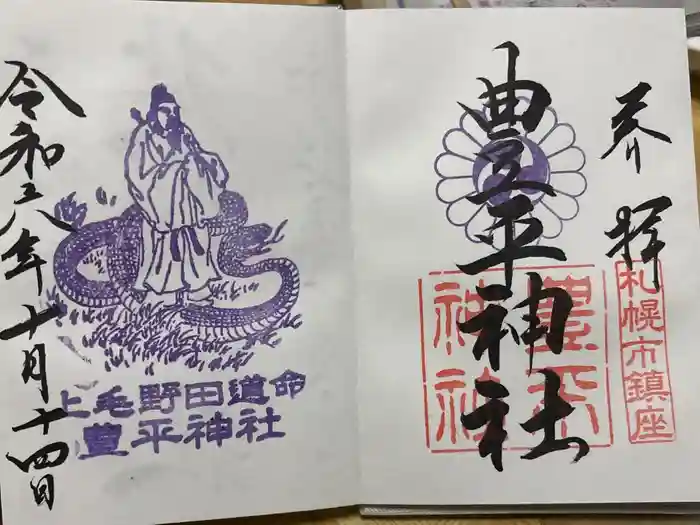 奉拝
札幌市鎮座
豊平神社
豊平神社
上毛野田道命
豊平神社
令和六年十月十四日